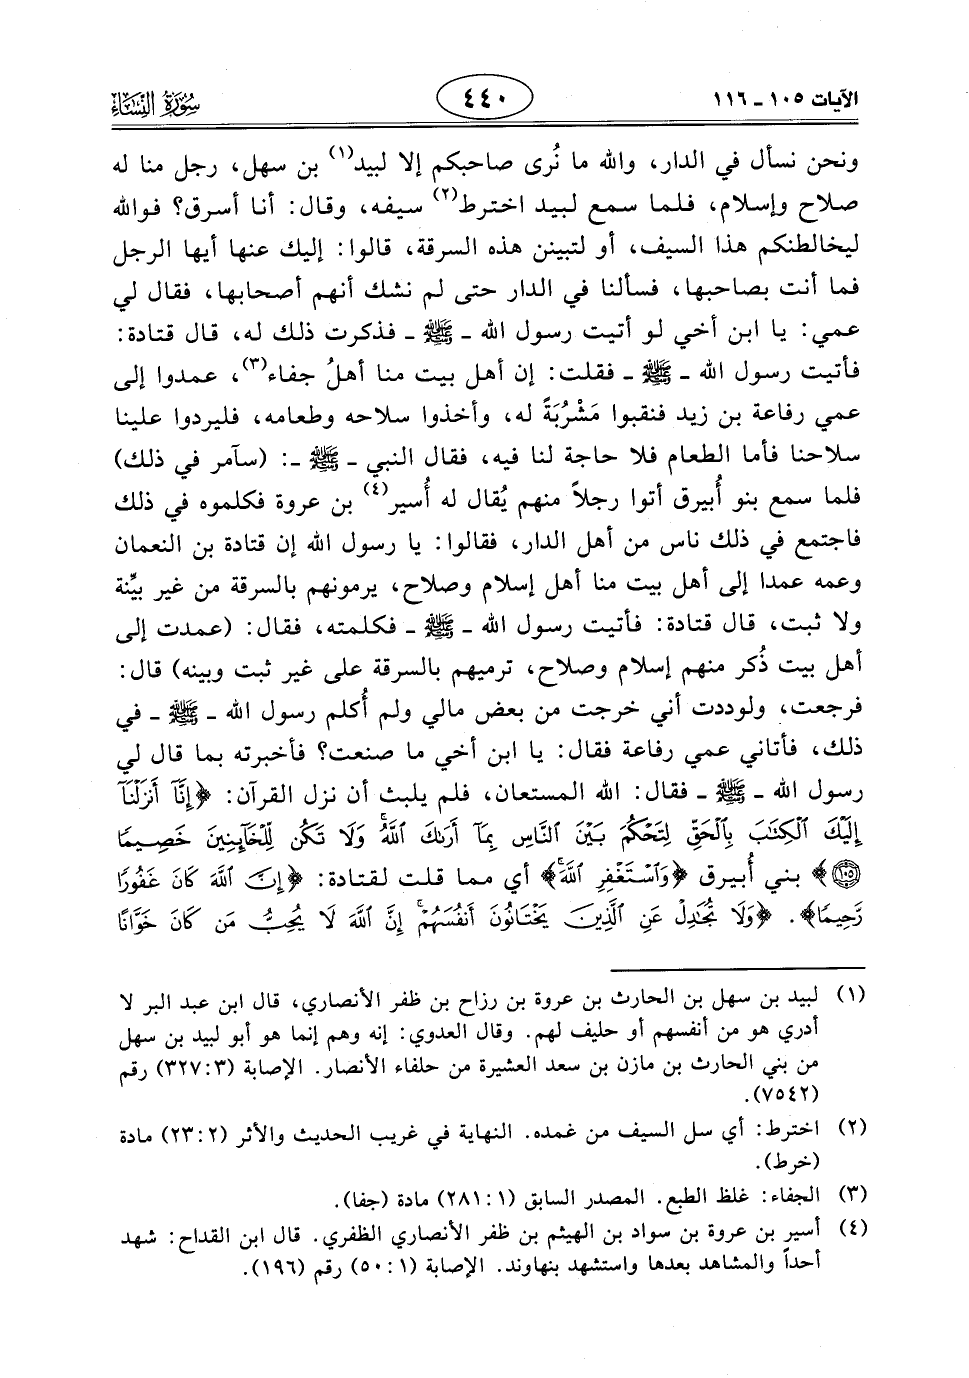 الآيات ١٠٥ ـ ١١٦
٤٤٠
سُورَةُ النِّسَاء
ونحن نسأل في الدار، والله ما نُرى صاحبكم إلا لبيد(١) بن سهل، رجل منا له
صلاح وإسلام، فلما سمع لبيد اخترط(٢) سيفه، وقال: أنا أسرق؟ فوالله
ليخالطنكم هذا السيف، أو لتبينن هذه السرقة، قالوا: إليك عنها أيها الرجل
فما أنت بصاحبها، فسألنا في الدار حتى لم نشك أنهم أصحابها، فقال لي
عمي: يا ابن أخي لو أتيت رسول الله ـ ﷺ ـ فذكرت ذلك له، قال قتادة:
فأتيت رسول الله ـ ﷺ ـ فقلت: إن أهل بيت منا أهلُ جفاء(٣)، عمدوا إلى
عمي رفاعة بن زيد فنقبوا مَشْرُبَةً له، وأخذوا سلاحه وطعامه، فليردوا علينا
سلاحنا فأما الطعام فلا حاجة لنا فيه، فقال النبي ـ ﷺ ـ: (سآمر في ذلك)
فلما سمع بنو أُبيرق أتوا رجلاً منهم يُقال له أُسير(٤) بن عروة فكلموه في ذلك
فاجتمع في ذلك ناس من أهل الدار، فقالوا: يا رسول الله إن قتادة بن النعمان
وعمه عمدا إلى أهل بيت منا أهل إسلام وصلاح، يرمونهم بالسرقة من غير بيِّنة
ولا ثبت، قال قتادة: فأتيت رسول الله ـ ﷺ ـ فكلمته، فقال: (عمدت إلى
أهل بيت ذُكر منهم إسلام وصلاح، ترميهم بالسرقة على غير ثبت وبينه) قال:
فرجعت، ولوددت أني خرجت من بعض مالي ولم أُكلم رسول الله ـ ﷺ ـ في
ذلك، فأتاني عمي رفاعة فقال: يا ابن أخي ما صنعت؟ فأخبرته بما قال لي
رسول الله ـ ﷺ ـ فقال: الله المستعان، فلم يلبث أن نزل القرآن: ﴿إِنَّآ أَنزَلْنَآ
إِلَيْكَ ٱلْكِتَٰبَ بِٱلْحَقِّ لِتَحْكُمَ بَيْنَ ٱلنَّاسِ بِمَآ أَرَىٰكَ ٱللَّهُ ۚ وَلَا تَكُن لِّلْخَآئِنِينَ خَصِيمًا
١٠٥﴾ بني أُبيرق ﴿وَٱسْتَغْفِرِ ٱللَّهَ ۖ﴾ أي مما قلت لقتادة: ﴿إِنَّ ٱللَّهَ كَانَ غَفُورًا
رَّحِيمًا﴾. ﴿وَلَا تُجَٰدِلْ عَنِ ٱلَّذِينَ يَخْتَانُونَ أَنفُسَهُمْ ۚ إِنَّ ٱللَّهَ لَا يُحِبُّ مَن كَانَ خَوَّانًا
(١) لبيد بن سهل بن الحارث بن عروة بن رزاح بن ظفر الأنصاري، قال ابن عبد البر لا
أدري هو من أنفسهم أو حليف لهم. وقال العدوي: إنه وهم إنما هو أبو لبيد بن سهل
من بني الحارث بن مازن بن سعد العشيرة من حلفاء الأنصار. الإصابة (٣٢٧:٣) رقم
(٧٥٤٢).
(٢) اخترط: أي سل السيف من غمده. النهاية في غريب الحديث والأثر (٢٣:٢) مادة
(خرط).
(٣) الجفاء: غلظ الطبع. المصدر السابق (٢٨١:١) مادة (جفا).
(٤) أسير بن عروة بن سواد بن الهيثم بن ظفر الأنصاري الظفري. قال ابن القداح: شهد
أحداً والمشاهد بعدها واستشهد بنهاوند. الإصابة (٥٠:١) رقم (١٩٦).